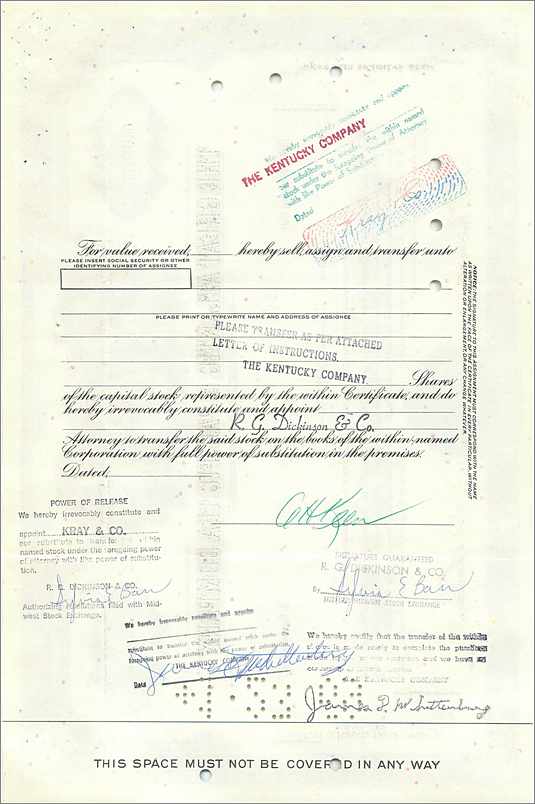 We hereby irrevocably constitute and appoint
THE KENTUCKY COMPANY
our substitute to transfer the within named
stock under the foregoing Power of Attorney
with like Power of Substitution
Dated
For value received, hereby sell, assign and transfer unto
PLEASE INSERT SOCIAL SECURITY OR OTHER
IDENTIFYING NUMBER OF ASSIGNEE
PLEASE PRINT OR TYPEWRITE NAME AND ADDRESS OF ASSIGNEE
PLEASE TRANSFER AS PER ATTACHED
LETTER OF INSTRUCTIONS.
THE KENTUCKY COMPANY
Shares
of the capital stock represented by the within Certificate, and do
hereby irrevocably constitute and appoint
R. G. Dickinson & Co.
Attorney to transfer the said stock on the books of the within named
Corporation with full power of substitution in the premises.
Dated
NOTICE: THE SIGNATURE TO THIS ASSIGNMENT MUST CORRESPOND WITH THE NAME
AS WRITTEN UPON THE FACE OF THE CERTIFICATE IN EVERY PARTICULAR, WITHOUT
ALTERATION OR ENLARGEMENT OR ANY CHANGE WHATEVER.
POWER OF RELEASE
We hereby irrevocably constitute and
appoint KRAY & CO.
our substitute to transfer within
named stock under the foregoing power
of attorney with like power of substitu-
tion.
R. G. DICKINSON & CO.
Sylvia E Barr
Authorized signatures filed with Mid-
west Stock Exchange.
SIGNATURE GUARANTEED
R. G. DICKINSON & CO.
By Sylvia E Barr
MEMBER MIDWEST STOCK EXCHANGE
We hereby irrevocably constitute and appoint
substitute to transfer the within named stock under the
foregoing power of attorney with like power of substitution
THE KENTUCKY COMPANY
Date
We hereby certify that the transfer of the within
is made solely to complete the purchase
and we have no
THE KENTUCKY COMPANY
THIS SPACE MUST NOT BE COVERED IN ANY WAY